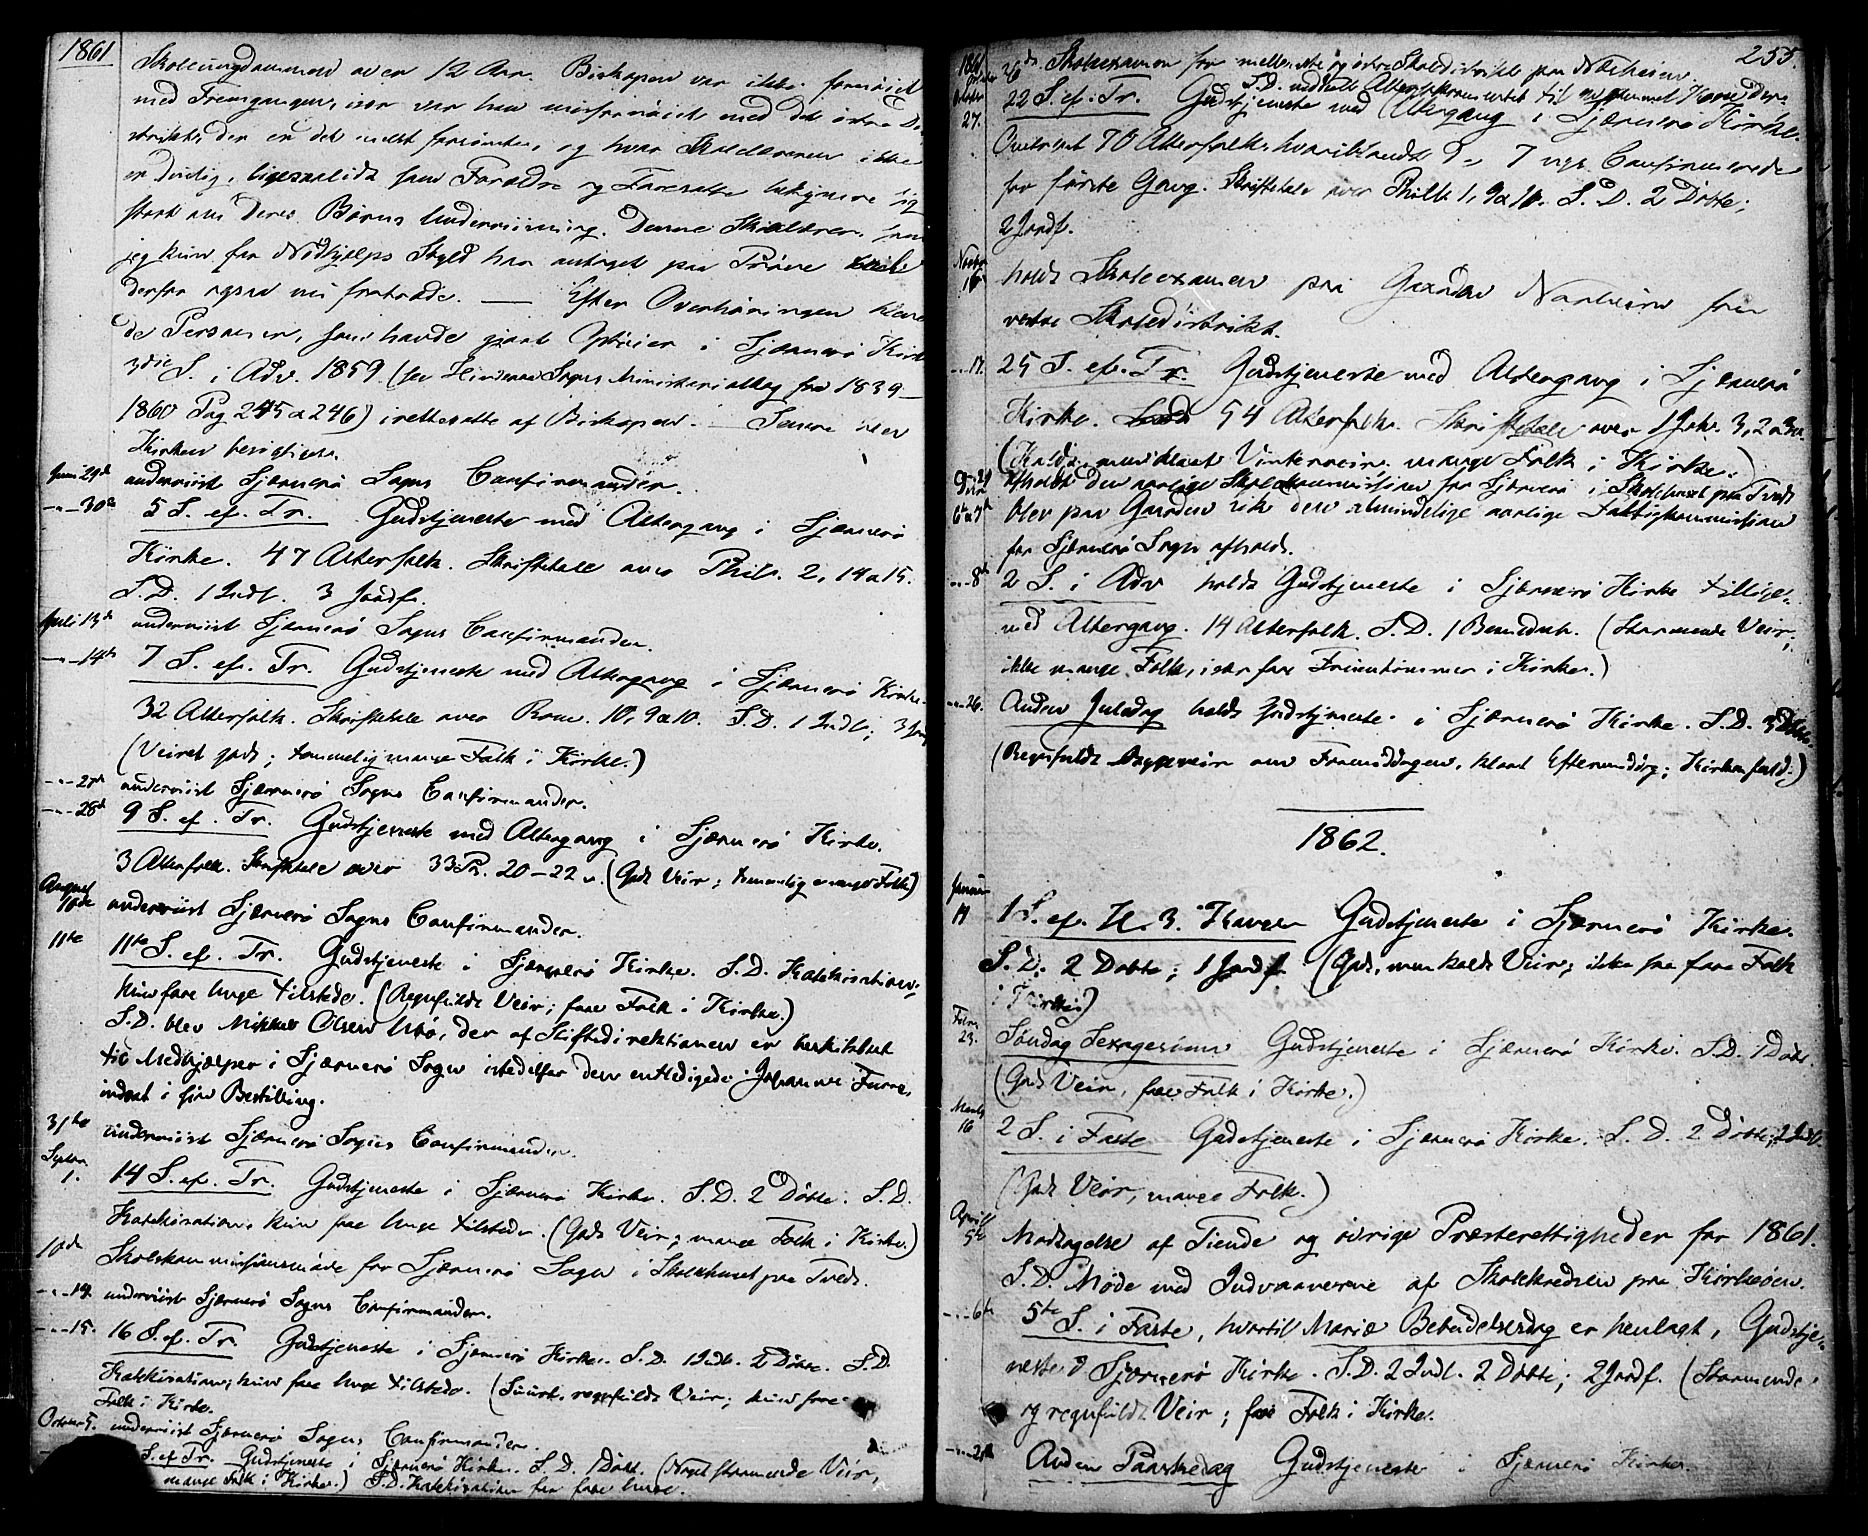 1861
Skoleungdommen over 12 Aar. Biskopen var ikke fornøiet
med Fremgangen, især var han misfornøiet med det østre Di-
strikt, der er det mest forsømte, og hvor Skolelæreren ikke
er duelig, ligesaalidt som Forældre og Foresatte bekymre sig
stort om deres Børns Underviisning. Denne Skolelærer, som
jeg kun for Nødhjælps Skyld har antaget paa Prøve
derfor ogsaa nu fratræde. — Efter Overhøringen bleve
de Personer, som havde gjort Optøier i Sjærnerø Kirke
3die S. i Adv. 1859 (see Hinderaa Sogns Ministerialbog fra 1839-
1860 Pag 245 a 246) irettesatte af Biskopen. — Senere blev
Kirken besigtiget.
Juni 29de underviist Sjærnerø Sogns Confirmander.
-"- 30te 5 S. ef. Tr. Gudstjeneste med Altergang i Sjærnerø
Kirke. 47 Alterfolk. Skriftetale over Phil. 2, 14 a 15.
S.D. 1 Indl. 3 Jordf.
Juli 13de underviist Sjærnerø Sogns Confirmander.
-"- 14de 7 S. ef. Tr. Gudstjeneste med Altergang i Sjærnerø Kirke.
32 Alterfolk. Skriftetale over Rom. 10, 9 a 10. S.D. 1 Indl; 3 Jordf
(Veiret godt; temmelig mange Folk i Kirke.)
-"- 27de underviist Sjærnerø Sogns Confirmander.
-"- 28de 9 S. ef. Tr. Gudstjeneste med Altergang i Sjærnerø Kirke.
3 Alterfolk. Skriftetale over 33 Ps. 20-22 v. (Godt Veir; temmelig mange Folk)
August 10de underviist Sjærnerø Sogns Confirmander.
11te 11te S. ef. Tr. Gudstjeneste i Sjærnerø Kirke. S.D. Katekisation;
kun faae Unge tilstede. (Regnfuldt Veir; faae Folk i Kirke.)
S.D. blev Mikkel Olsen Utsø, der af Stiftsdirektionen er beskikket
til Medhjælper i Sjærnerø Sogn istedetfor den entledigede Johannes
indsat i sin Bestilling.
31te underviist Sjærnerø Sogns Confirmander.
Septbr. 1. 14 S. ef. Tr. Gudstjeneste i Sjærnerø Kirke. S.D. 2 Døbte. S.D.
Katekisation, kun faae Unge tilstede. (Godt Veir; mange Folk i Kirke.)
10de Skolekommissionsmøde for Sjærnerø Sogn i Skolehuset paa Tveit.
-"- 14. underviist Sjærnerø Sogns Confirmander.
-"- 15. 16 S. ef. Tr. Gudstjeneste i Sjærnerø Kirke. S.D. 1 Indl. 2 Døbte. S.D.
Katekisation; kun faae Unge tilstede. (Suurt, regnfuldt Veir; kun faae
Folk i Kirke.
October 5. underviist Sjærnerø Sogns Confirmander.
S. ef Tr. Gudstjeneste i Sjærnerø Kirke. S.D. 1 Døbt. (Noget stormende Veir,
mange Folk i Kirke.) S.D. Katekisation for faae Unge.
255.
1861
26de Skoleexamen for mellemste og østre Skoledistrikt paa Norheim.
S.D. meddelt Altersakramentet til en gammel Kone dere
October 27. 22 S. ef. Tr. Gudstjeneste med Altergang i Sjærnerø Kirke.
Omtrent 70 Alterfolk, hvoriblandt 7 nys Confirmerede
for første Gang. Skriftetale over Phil 1, 9 a 10. S.D. 2 Døbte;
2 Jordf.
Novbr 16 holdt Skoleexamen paa Gaarden Norheim for
vestre Skoledistrikt.
-"- 17. 25 S. ef. Tr. Gudstjeneste med Altergang i Sjærnerø
Kirke. 54 Alterfolk. Skriftetale over 1 Joh. 3, 2 a 3 v
(Koldt, men klart Vinterveir; mange Folk i Kirke.)
afholdt den aarlige Skolekommission for Sjærnerø i Skolehuset paa Tveit
6te blev paa Gaarden den almindelige aarlige Fattigkommission
for Sjærnerø Sogn afholdt.
-"- 8de 2 S. i Adv holdt Gudstjeneste i Sjærnerø Kirke tillige
med Altergang. 14 Alterfolk. S.D. 1 (Stormende Veir;
ikke mange Folk, især faae Fruentimmer i Kirke.)
-"- 26. Anden Juledag holdt Gudstjeneste i Sjærnerø Kirke. S.D. 3 Døbte.
(Regnfuldt om Formiddagen, klart Eftermiddag; Kirken fuld.)
1862.
Januar 19 1 S. ef. H. 3. Konger Gudstjeneste i Sjærnerø Kirke.
S.D. 2 Døbte; 1 Jordf. (Godt, men koldt Veir; ikke saa faae Folk
i Kirke)
Febru. 23. Søndag Sexagesima Gudstjeneste i Sjærnerø Kirke. S.D. 1 Døbt.
(Godt Veir, faae Folk i Kirke.)
Marts 16 2 S. i Faste Gudstjeneste i Sjærnerø Kirke. S.D. 2 Døbte; 2 Indl.
(Godt Veir, mange Folk.)
April 5te Modtagelse af Tiende og øvrige Præsterettigheder for 1861.
S.D. Møde med Indvaanerne af Skolekredsen paa Kirkeøen.
-"- 6te 5te S. i Faste, hvortil Mariæ Bebudelsesdag er henlagt, Gudstje-
neste i Sjærnerø Kirke. S.D. 2 Indl. 2 Døbte; 2 Jordf. (Stormende
og regnfuldt Veir; faae Folk i Kirke.
-"- Anden Paaskedag Gudstjeneste i Sjærnerø Kirke.